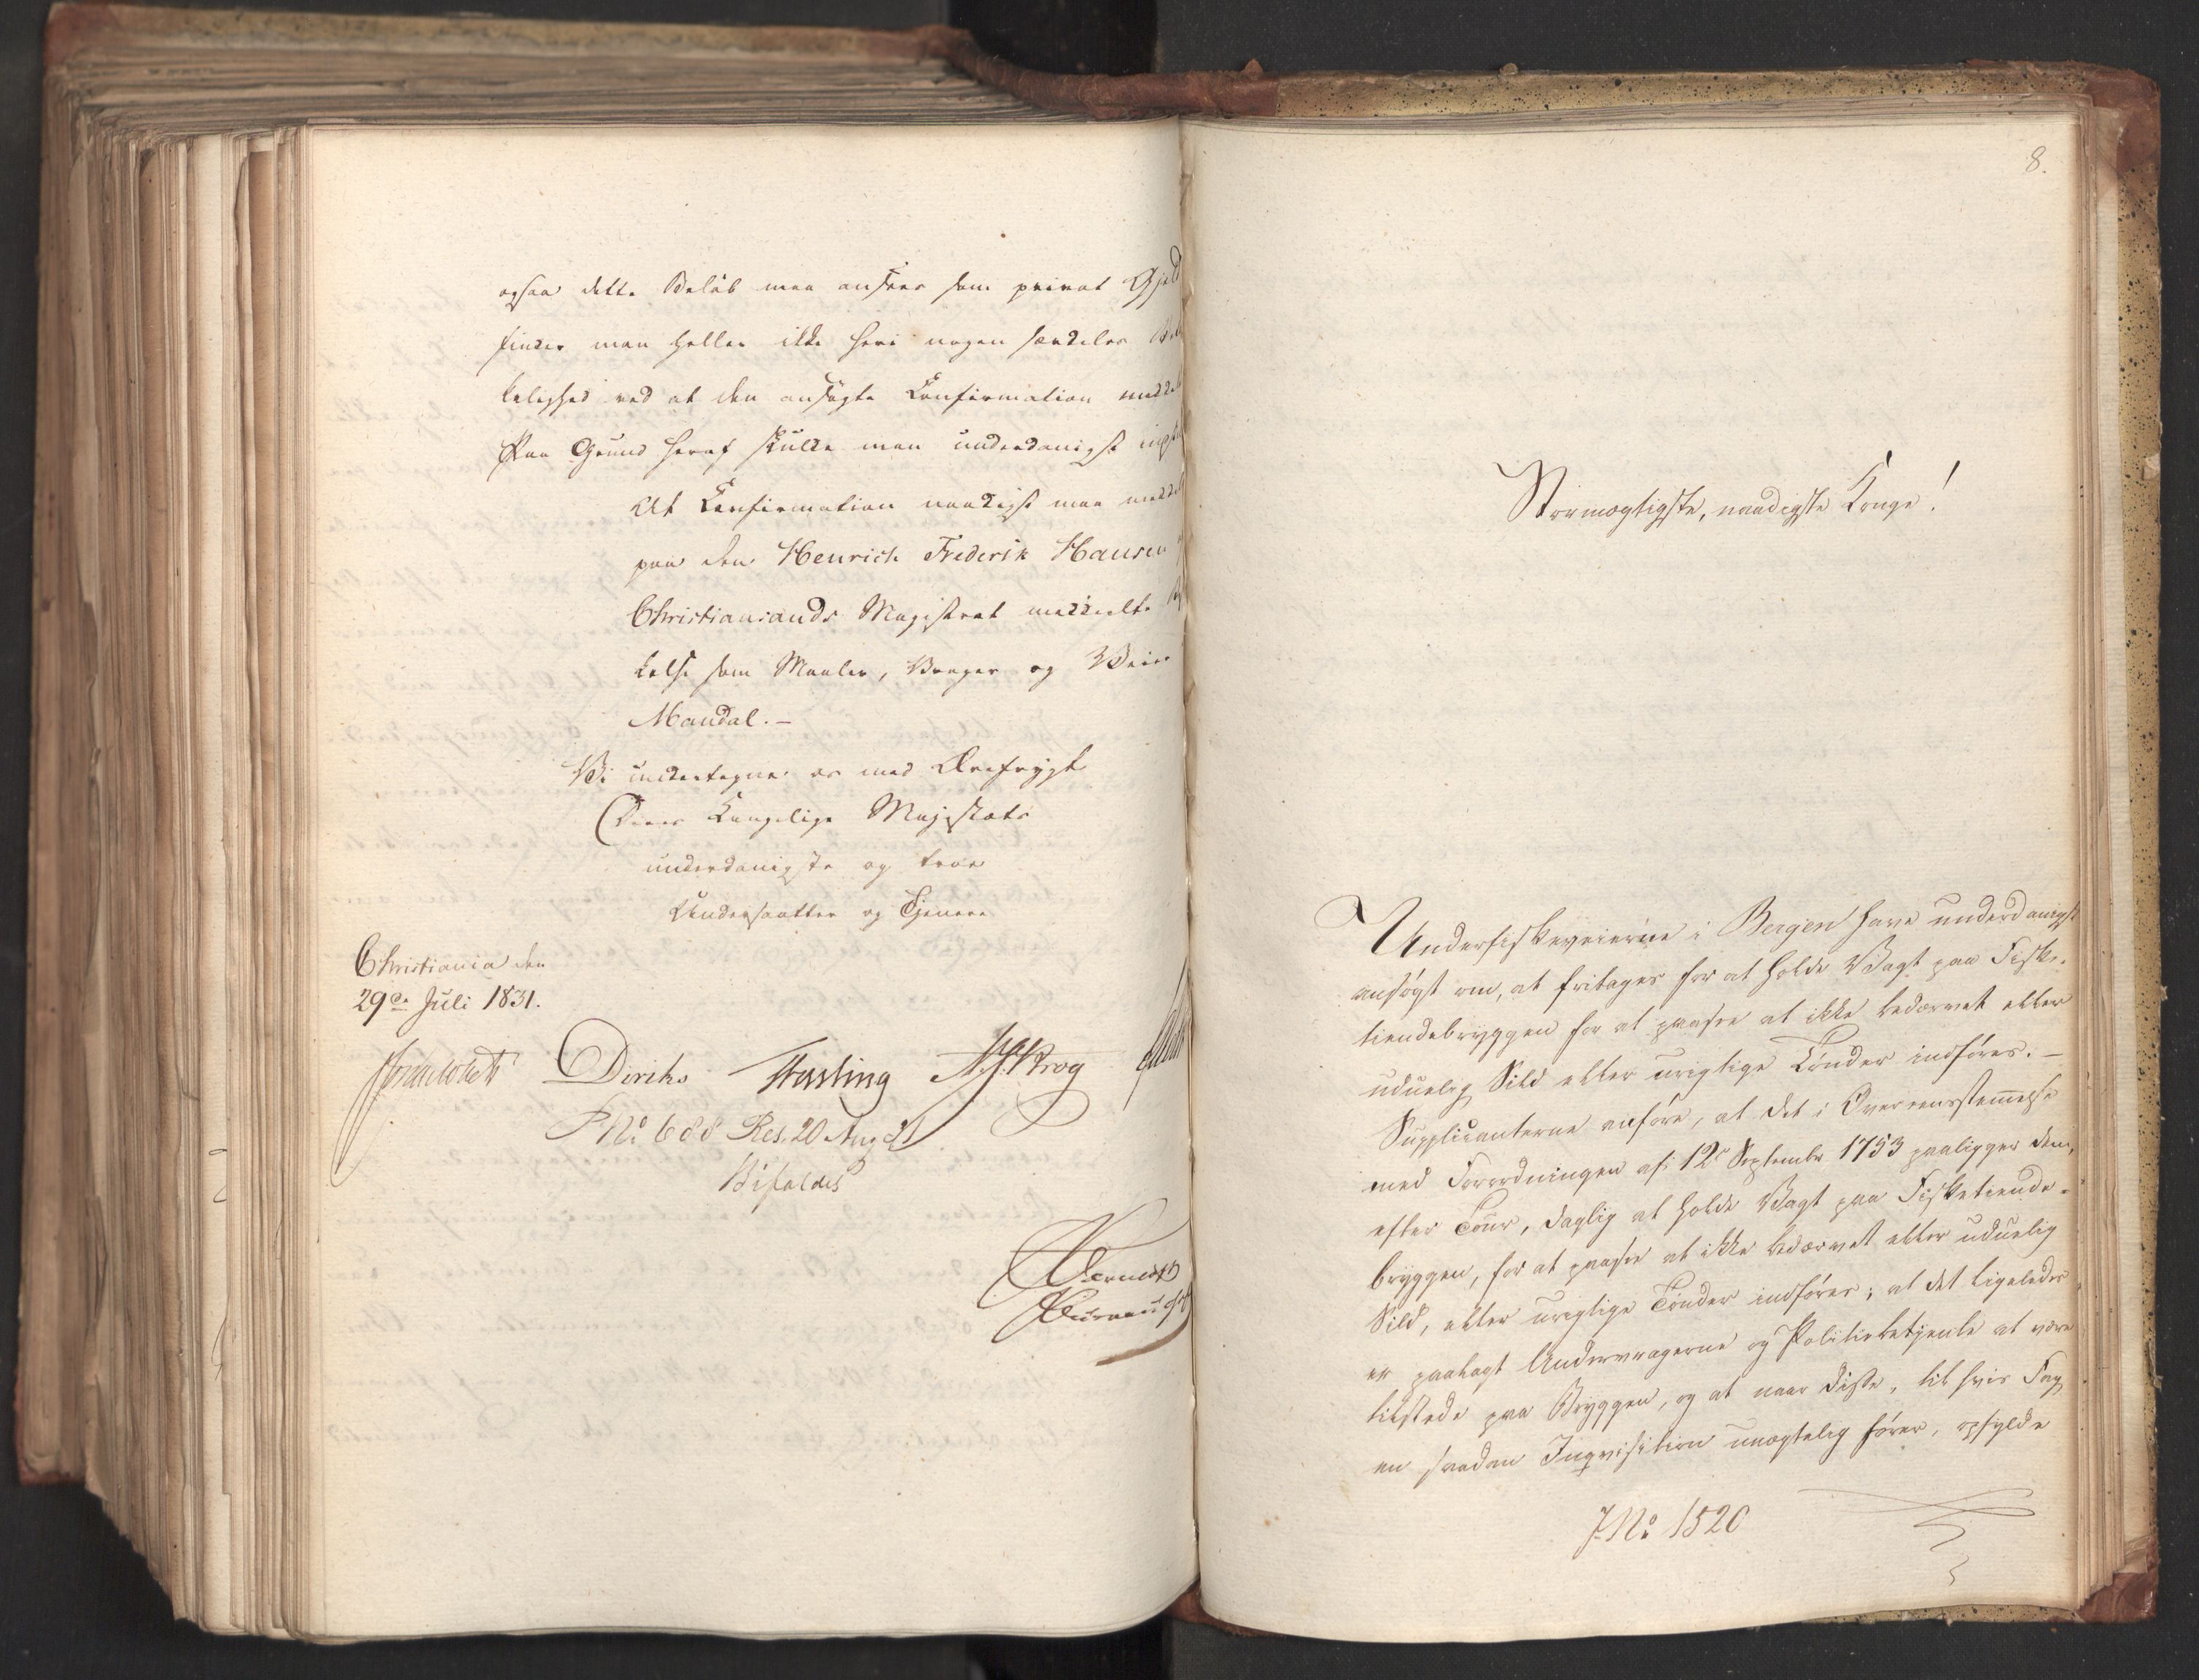 ogsaa dette Beløb maa ansees som privat Gjeld
finder man heller ikke heri nogen særdeles
kelighed ved at den ansøgte Confirmation meddel
Paa Grund heraf skulde man underdanigst
At Confirmation naadigst maa meddel
paa den Henrich Frederik Hansen
Christiansands Magistrat meddeelte
kelse som Maaler, Vrager og Veier
Mandal.-
Vi undertegne os med Ærefrygt
Deres Kongelige Majestæts
underdanigste og troe
Undersaatter og Tjenere
Christiania den
29de Juli 1831.
Diriks Fasting Krog
No 688 Res. 20 Aug 31
Bifaldes
8.
Stormægtigste, naadigste Konge!
Underfiskeveierne i Bergen have underdanigst
ansøgt om, at fritages for at holde Vagt paa Fiske-
tiendebryggen for at paasee at ikke bedærvet eller
uduelig Sild eller urigtige Tønder indføres.-
Supplicanterne anføre, at det i Overeensstemmelse
med Forordningen af 12te September 1753 paaligger dem,
efter Tour, daglig at holde Vagt paa Fisketiende-
bryggen, for at paasee at ikke bedærvet eller uduelig
Sild, eller urigtige Tønder indføres; at det ligeledes
er paalagt Undervragerne og Politiebetjente at være
tilstede paa Bryggen, og at naar disse, til hvis Fag
en saadan Inqvisition unægtelig hører, opfylde
J.No 1520